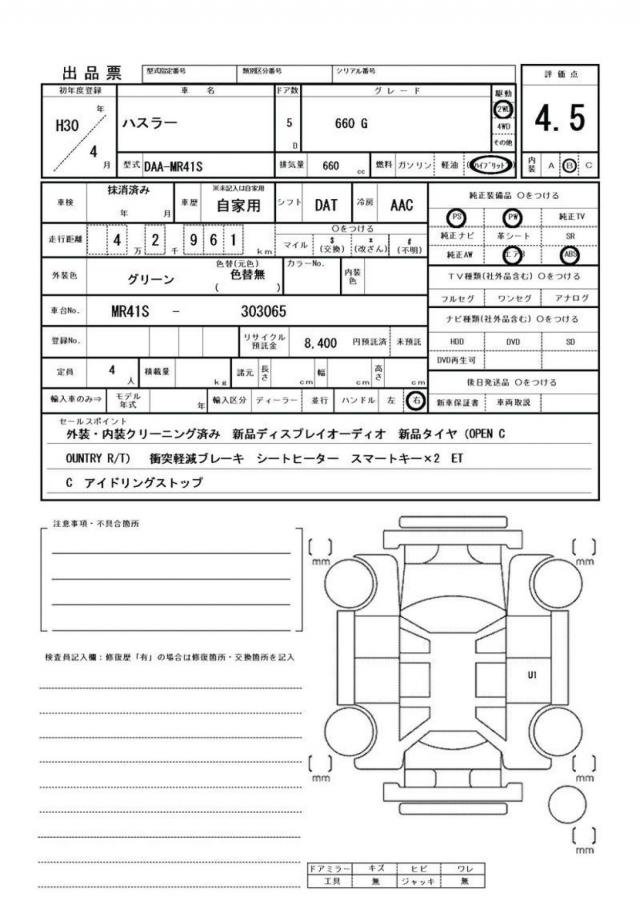 出品票 型式指定番号 類別区分番号 シリアル番号
初年度登録 車名 ドア数 グレード 駆動 評価点
H30 年 4 月 ハスラー 5 D 660 G 2WD 4WD その他 4.5
型式 DAA-MR41S 排気量 660 cc 燃料 ガソリン 軽油 ハイブリット 内装 A B C
車検 抹消済み 年 月 車歴 ※未記入は自家用 自家用 シフト DAT 冷房 AAC 純正装備品 ○をつける
走行距離 4 万 2 千 9 6 1 km ○をつける マイル $(交換) *(改ざん) #(不明) PS PW 純正TV
純正ナビ 革シート SR
純正AW エアB ABS
外装色 グリーン 色替(元色) 色替無 ( ) カラーNo. 内装色 TV種類(社外品含む) ○をつける
フルセグ ワンセグ アナログ
車台No. MR41S - 303065 ナビ種類(社外品含む) ○をつける
登録No. リサイクル預託金 8,400 円預託済 未預託 HDD DVD SD
DVD再生可
定員 4 人 積載量 kg 諸元 長さ cm 幅 cm 高さ cm 後日発送品 ○をつける
輸入車のみ⇒ モデル年式 年 輸入区分 ディーラー 並行 ハンドル 左 右 新車保証書 車両取説
セールスポイント
外装・内装クリーニング済み 新品ディスプレイオーディオ 新品タイヤ (OPEN C
OUNTRY R/T) 衝突軽減ブレーキ シートヒーター スマートキー×2 ET
C アイドリングストップ
注意事項・不具合箇所
mm mm
検査員記入欄:修復歴「有」の場合は修復箇所・交換箇所を記入
U1
mm mm
mm
ドアミラー キズ ヒビ ワレ
工具 無 ジャッキ 無